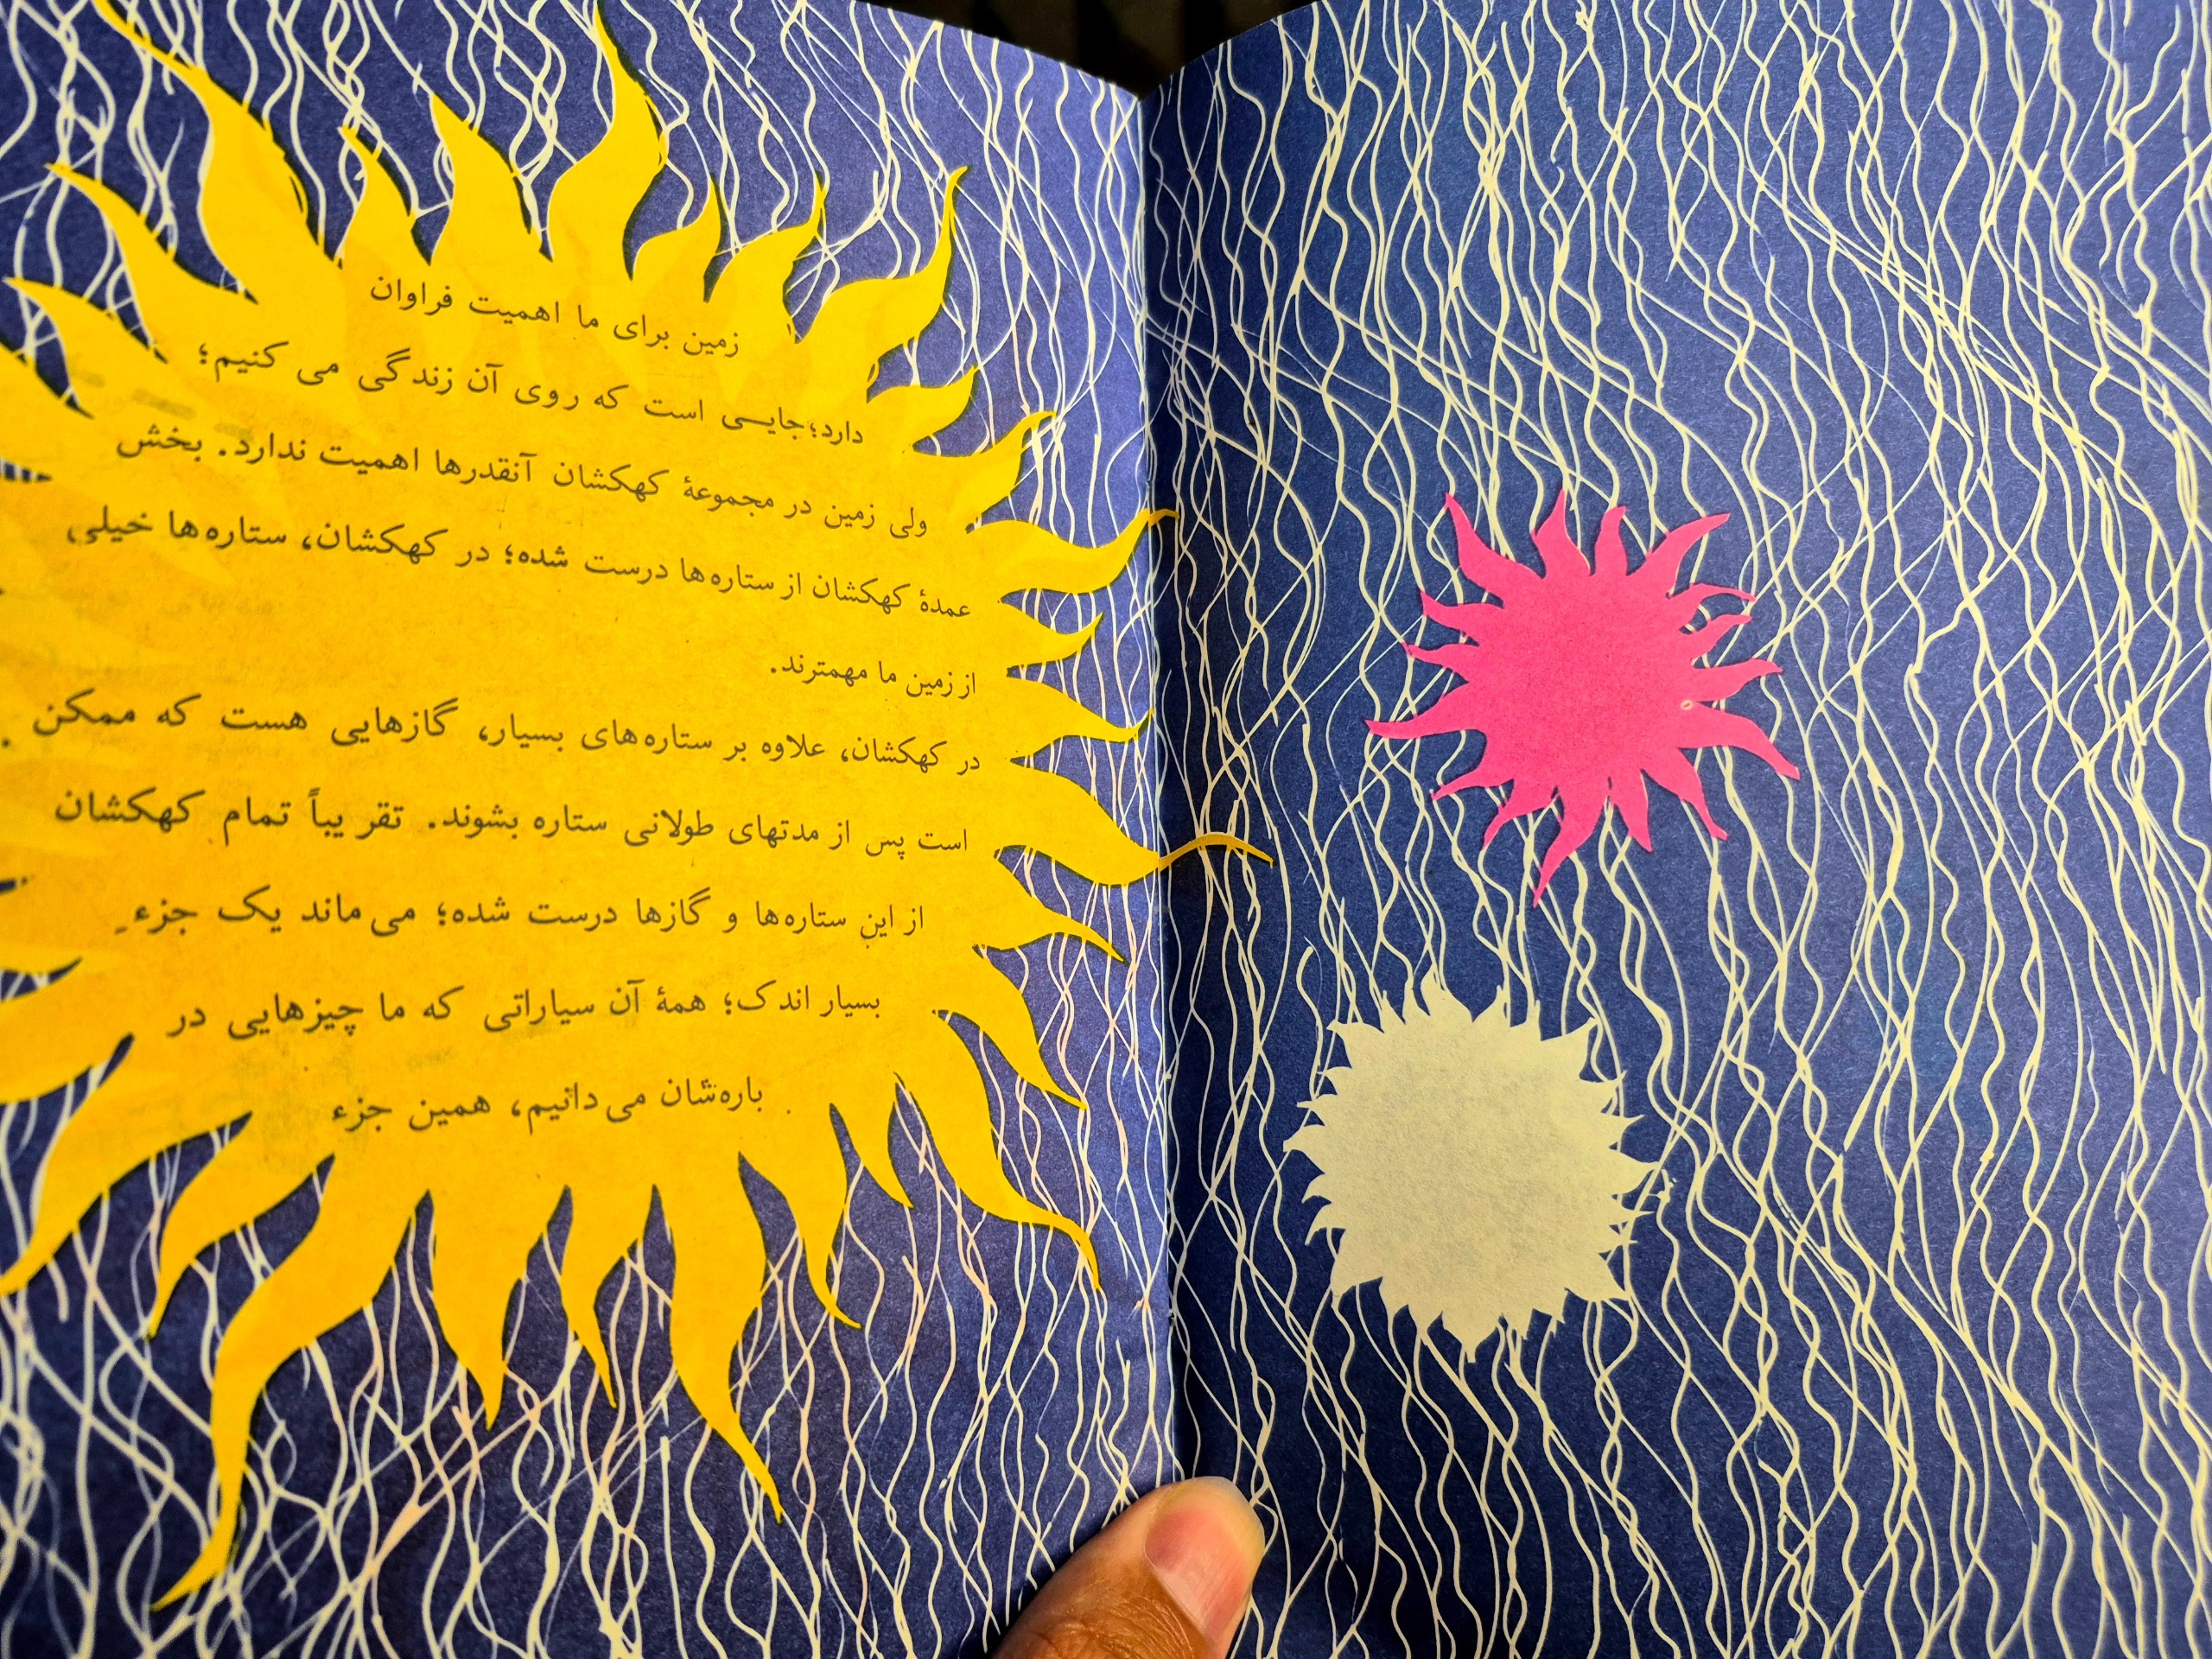 زمین برای ما اهمیت فراوان
دارد؛جایی است که روی آن زندگی می کنیم؛
ولی زمین در مجموعهٔ کهکشان آنقدرها اهمیت ندارد. بخش
عمدهٔ کهکشان از ستاره‌ها درست شده؛ در کهکشان، ستاره‌ها خیلی
از زمین ما مهمترند.
در کهکشان، علاوه بر ستاره‌های بسیار، گازهایی هست که ممکن
است پس از مدتهای طولانی ستاره بشوند. تقریباً تمام کهکشان
از این ستاره‌ها و گازها درست شده؛ می‌ماند یک جزءِ
بسیار اندک؛ همهٔ آن سیاراتی که ما چیزهایی در
باره‌شان می‌دانیم، همین جزء